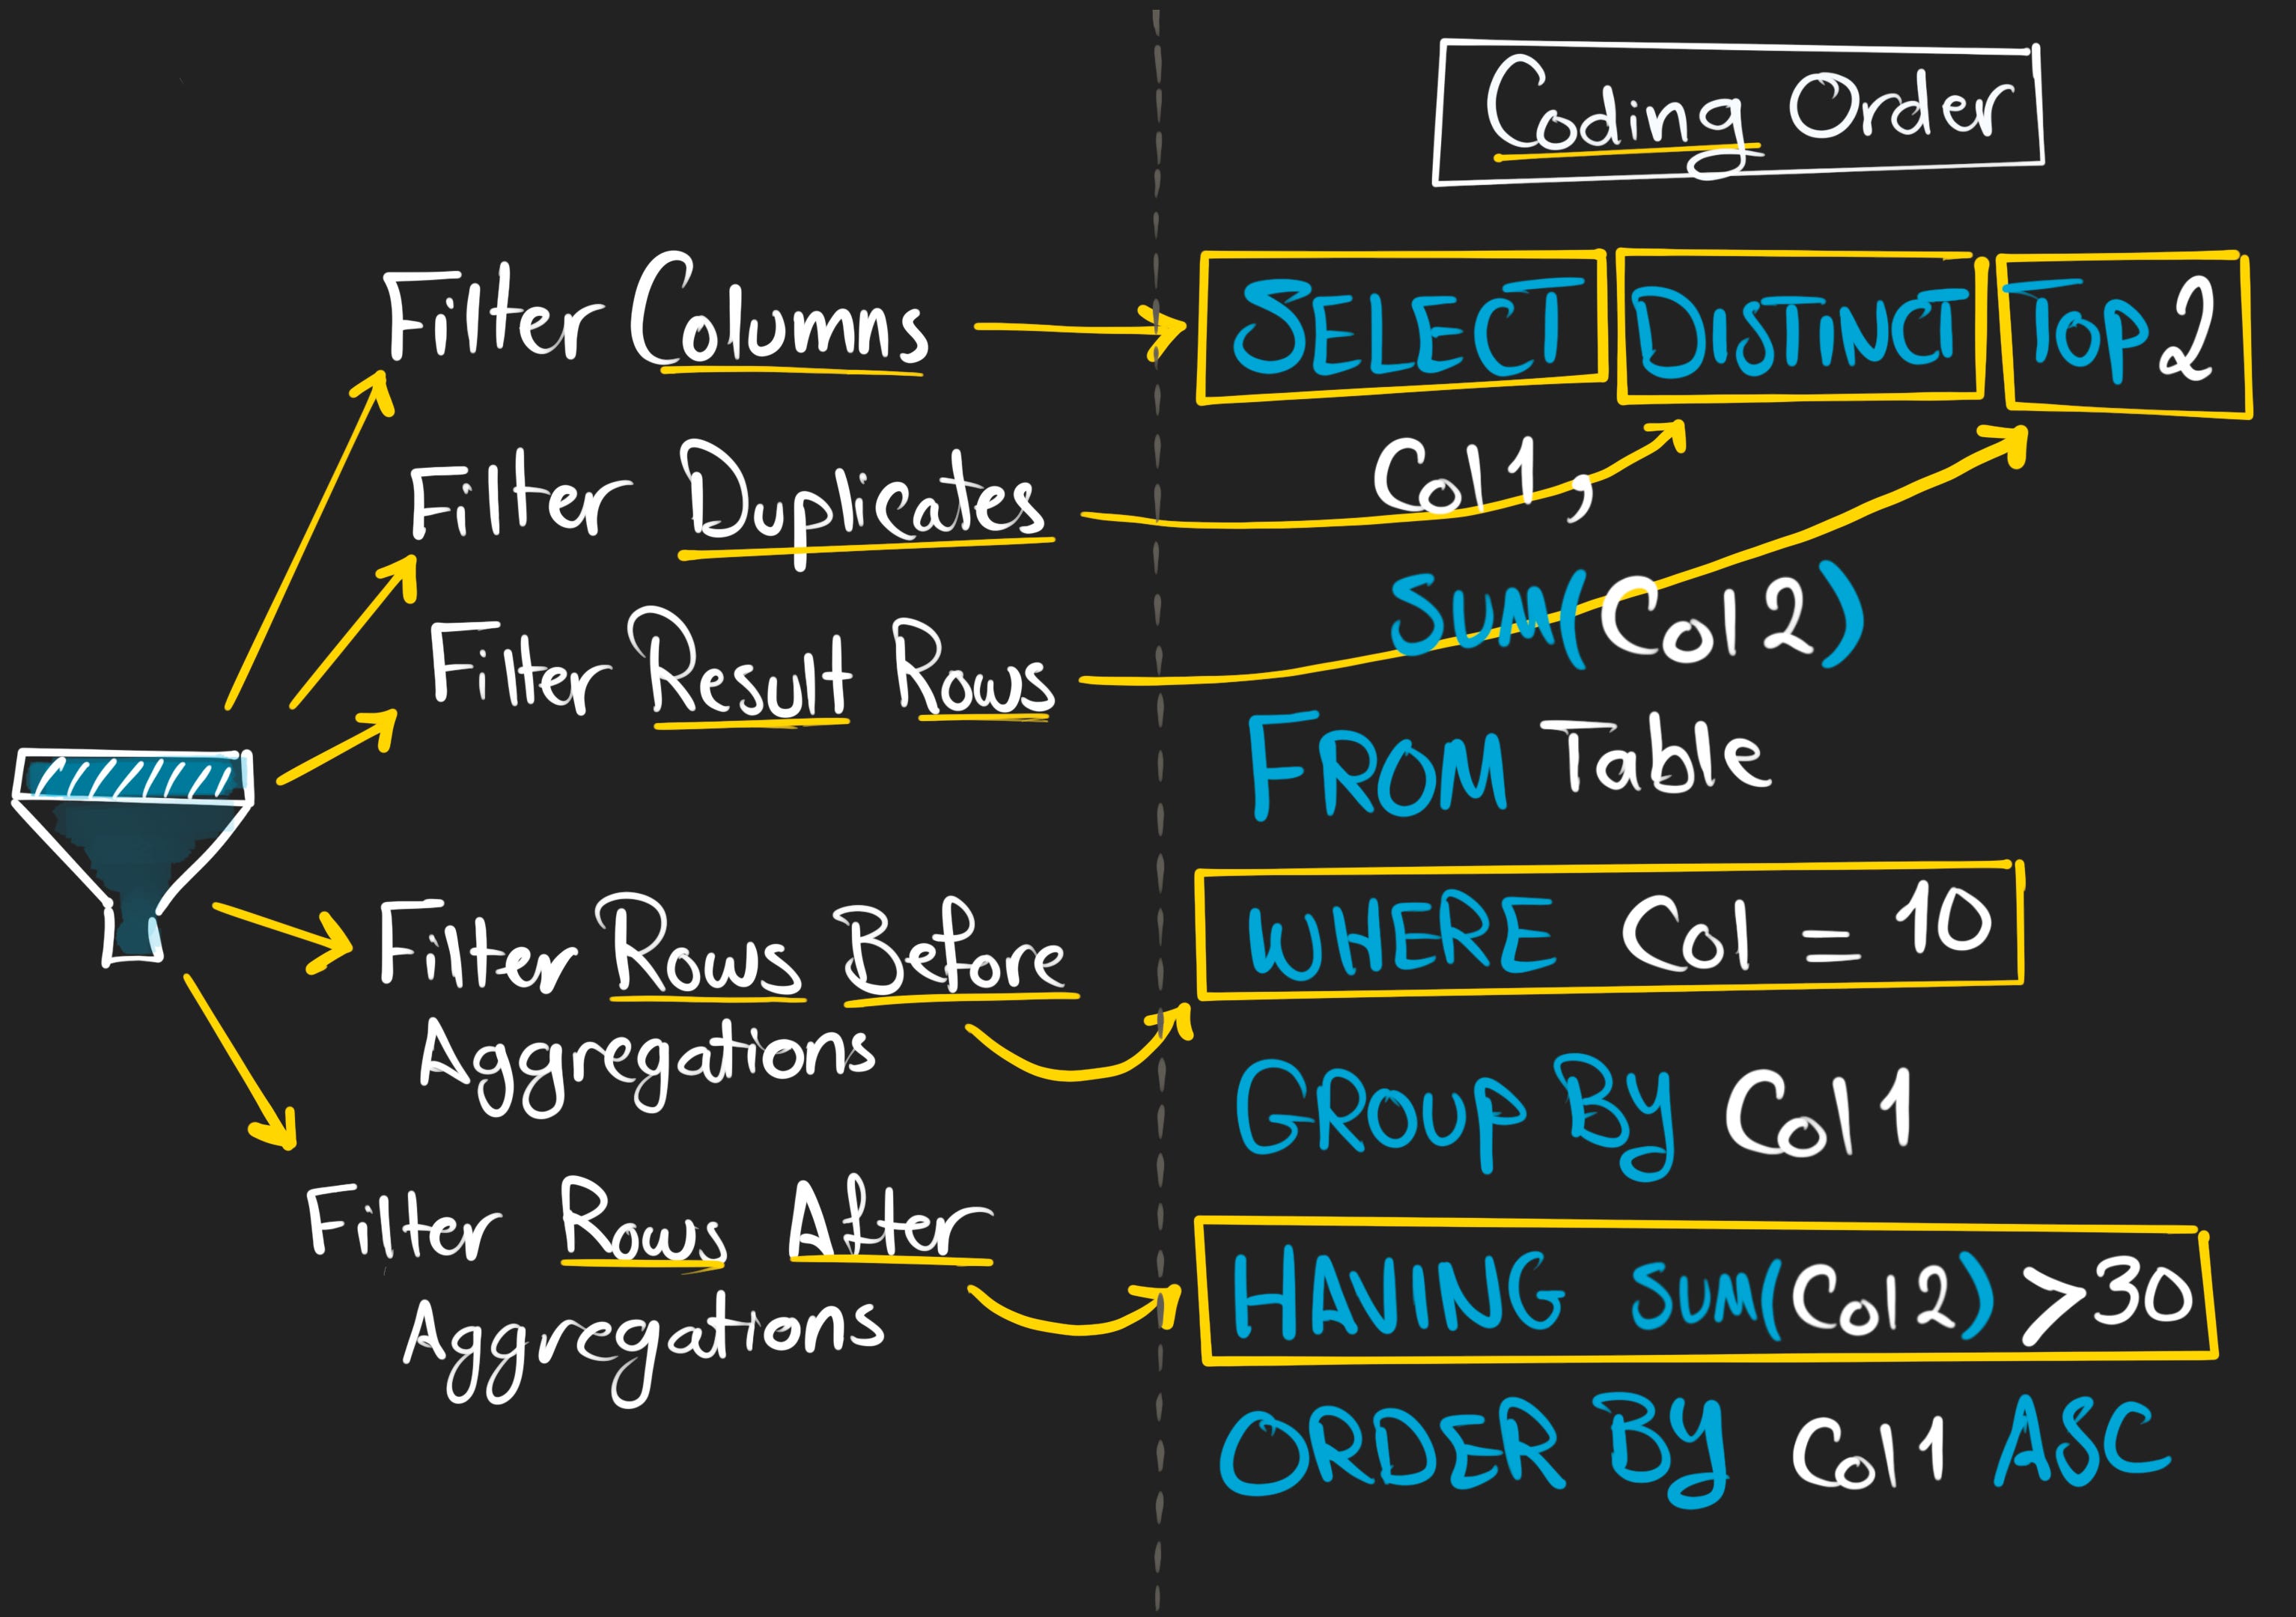 Coding Order
Filter Columns
Filter Duplicates
Filter Result Rows
Filter Rows Before
Aggregations
Filter Rows After
Aggregations
SELECT DISTINCT TOP 2
Col1,
SUM(Col2)
FROM Table
WHERE Col = 10
GROUP BY Col1
HAVING SUM(Col2) > 30
ORDER BY Col1 ASC